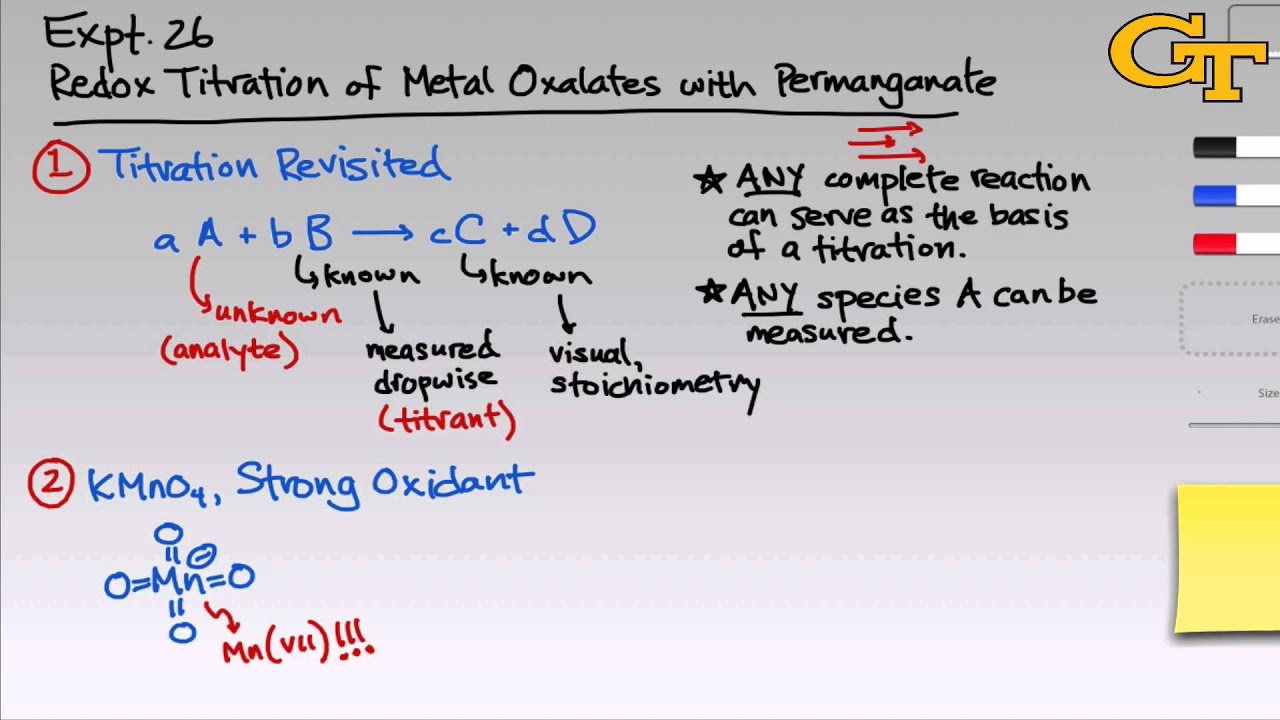 Expt. 26
Redox Titration of Metal Oxalates with Permanganate
GT
① Titration Revisited
a A + b B → cC + dD
↳known
↳known
unknown
(analyte)
measured
dropwise
(titrant)
visual,
stoichiometry
★ ANY complete reaction
can serve as the basis
of a titration.
★ ANY species A can be
measured.
② KMnO₄, Strong Oxidant
O
⊖
O=Mn=O
O
Mn(VII)!!!
Erase
Size